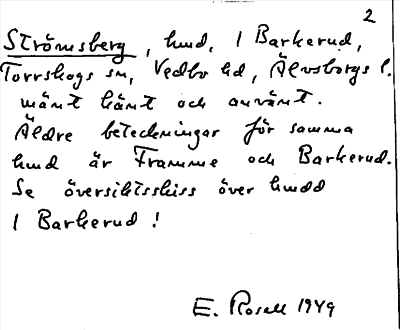 2
Strömsberg, hmd, 1 Barkerud,
Torrskogs sn, Vedbo hd, Älvsborgs l.
mänt känt och använt.
Äldre beteckningar för samma
hmd är Framme och Barkerud.
Se översiktsskiss över hmdd
1 Barkerud !
E. Rosell 1949